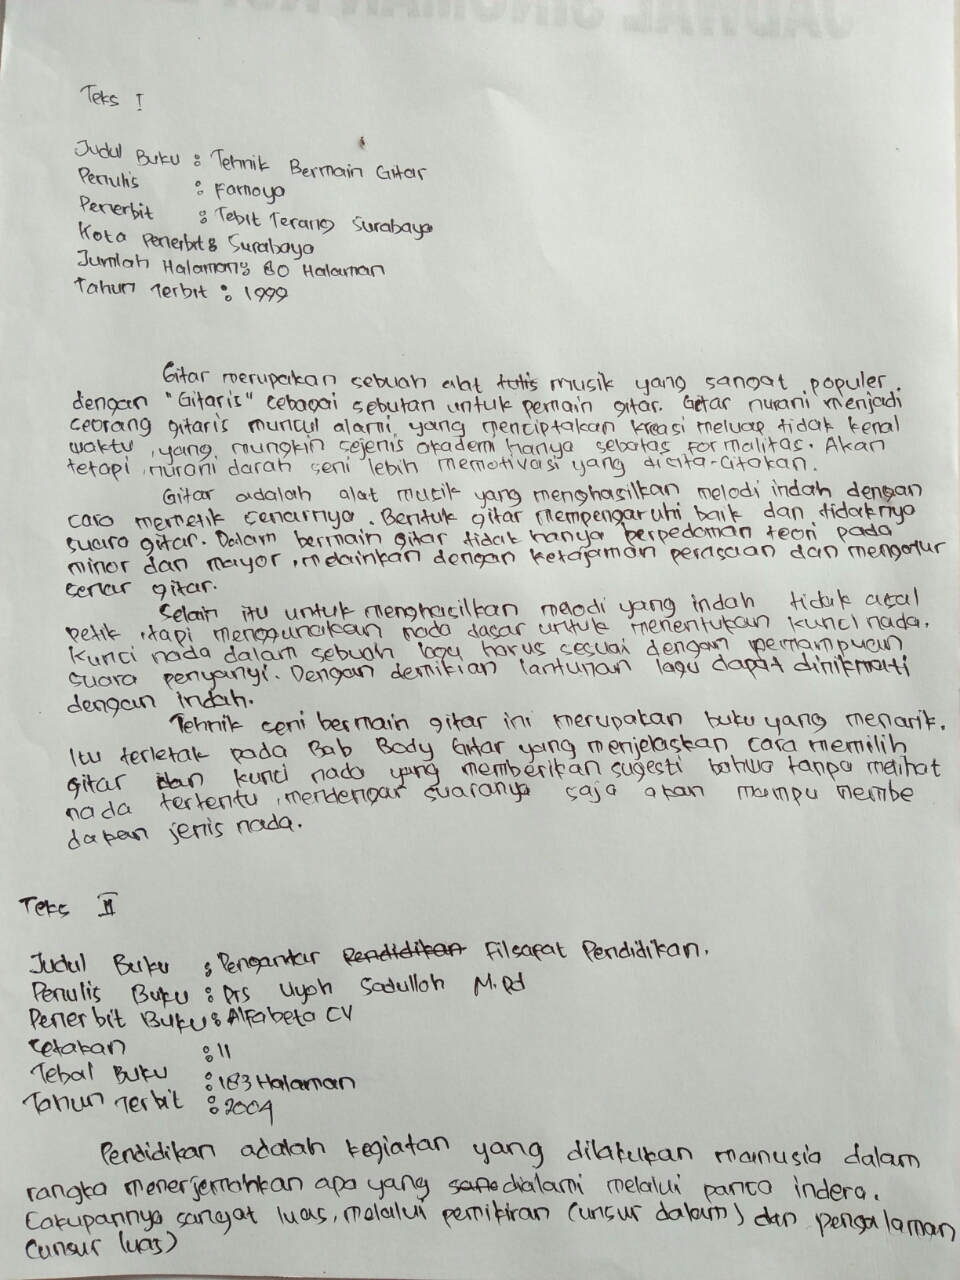 Teks I
Judul Buku : Tehnik Bermain Gitar
Penulis : Farnoyo
Penerbit : Tebit Terang Surabaya
Kota Penerbit : Surabaya
Jumlah Halaman : 80 Halaman
Tahun Terbit : 1999
Gitar merupakan sebuah alat musik yang sangat populer.
dengan "Gitaris" sebagai sebutan untuk pemain gitar. Getar nurani menjadi
seorang gitaris muncul alami, yang menciptakan kreasi meluap tidak kenal
waktu, yang mungkin sejenis akademi hanya sebatas formalitas. Akan
tetapi, nurani darah seni lebih memotivasi yang dicita-citakan.
Gitar adalah alat musik yang menghasilkan melodi indah dengan
cara memetik senarnya. Bentuk gitar mempengaruhi baik dan tidaknya
suara gitar. Dalam bermain gitar tidak hanya berpedoman teori pada
minor dan mayor, melainkan dengan ketajaman perasaan dan mengatur
senar gitar.
Selain itu untuk menghasilkan melodi yang indah tidak asal
petik, tapi menggunakan nada dasar untuk menentukan kunci nada.
Kunci nada dalam sebuah lagu harus sesuai dengan pemampuan
suara penyanyi. Dengan demikian lantunan lagu dapat dinikmati
dengan indah.
Tehnik seni bermain gitar ini merupakan buku yang menarik.
Itu terletak pada Bab Body Gitar yang menjelaskan cara memilih
gitar dan kunci nada yang memberikan sugesti bahwa tanpa melihat
nada tertentu, mendengar suaranya saja akan mampu membe
dakan jenis nada.
Teks II
Judul Buku : Pengantar Pendidikan Filsafat Pendidikan.
Penulis Buku : Drs Uyoh Sadulloh M.Pd
Penerbit Buku : Alfabeta CV
Cetakan : 11
Tebal Buku : 183 Halaman
Tahun Terbit : 2004
Pendidikan adalah kegiatan yang dilakukan manusia dalam
rangka menerjemahkan apa yang dialami melalui panca indera.
Cakupannya sangat luas, melalui pemikiran (unsur dalam) dan pengalaman
(unsur luas)